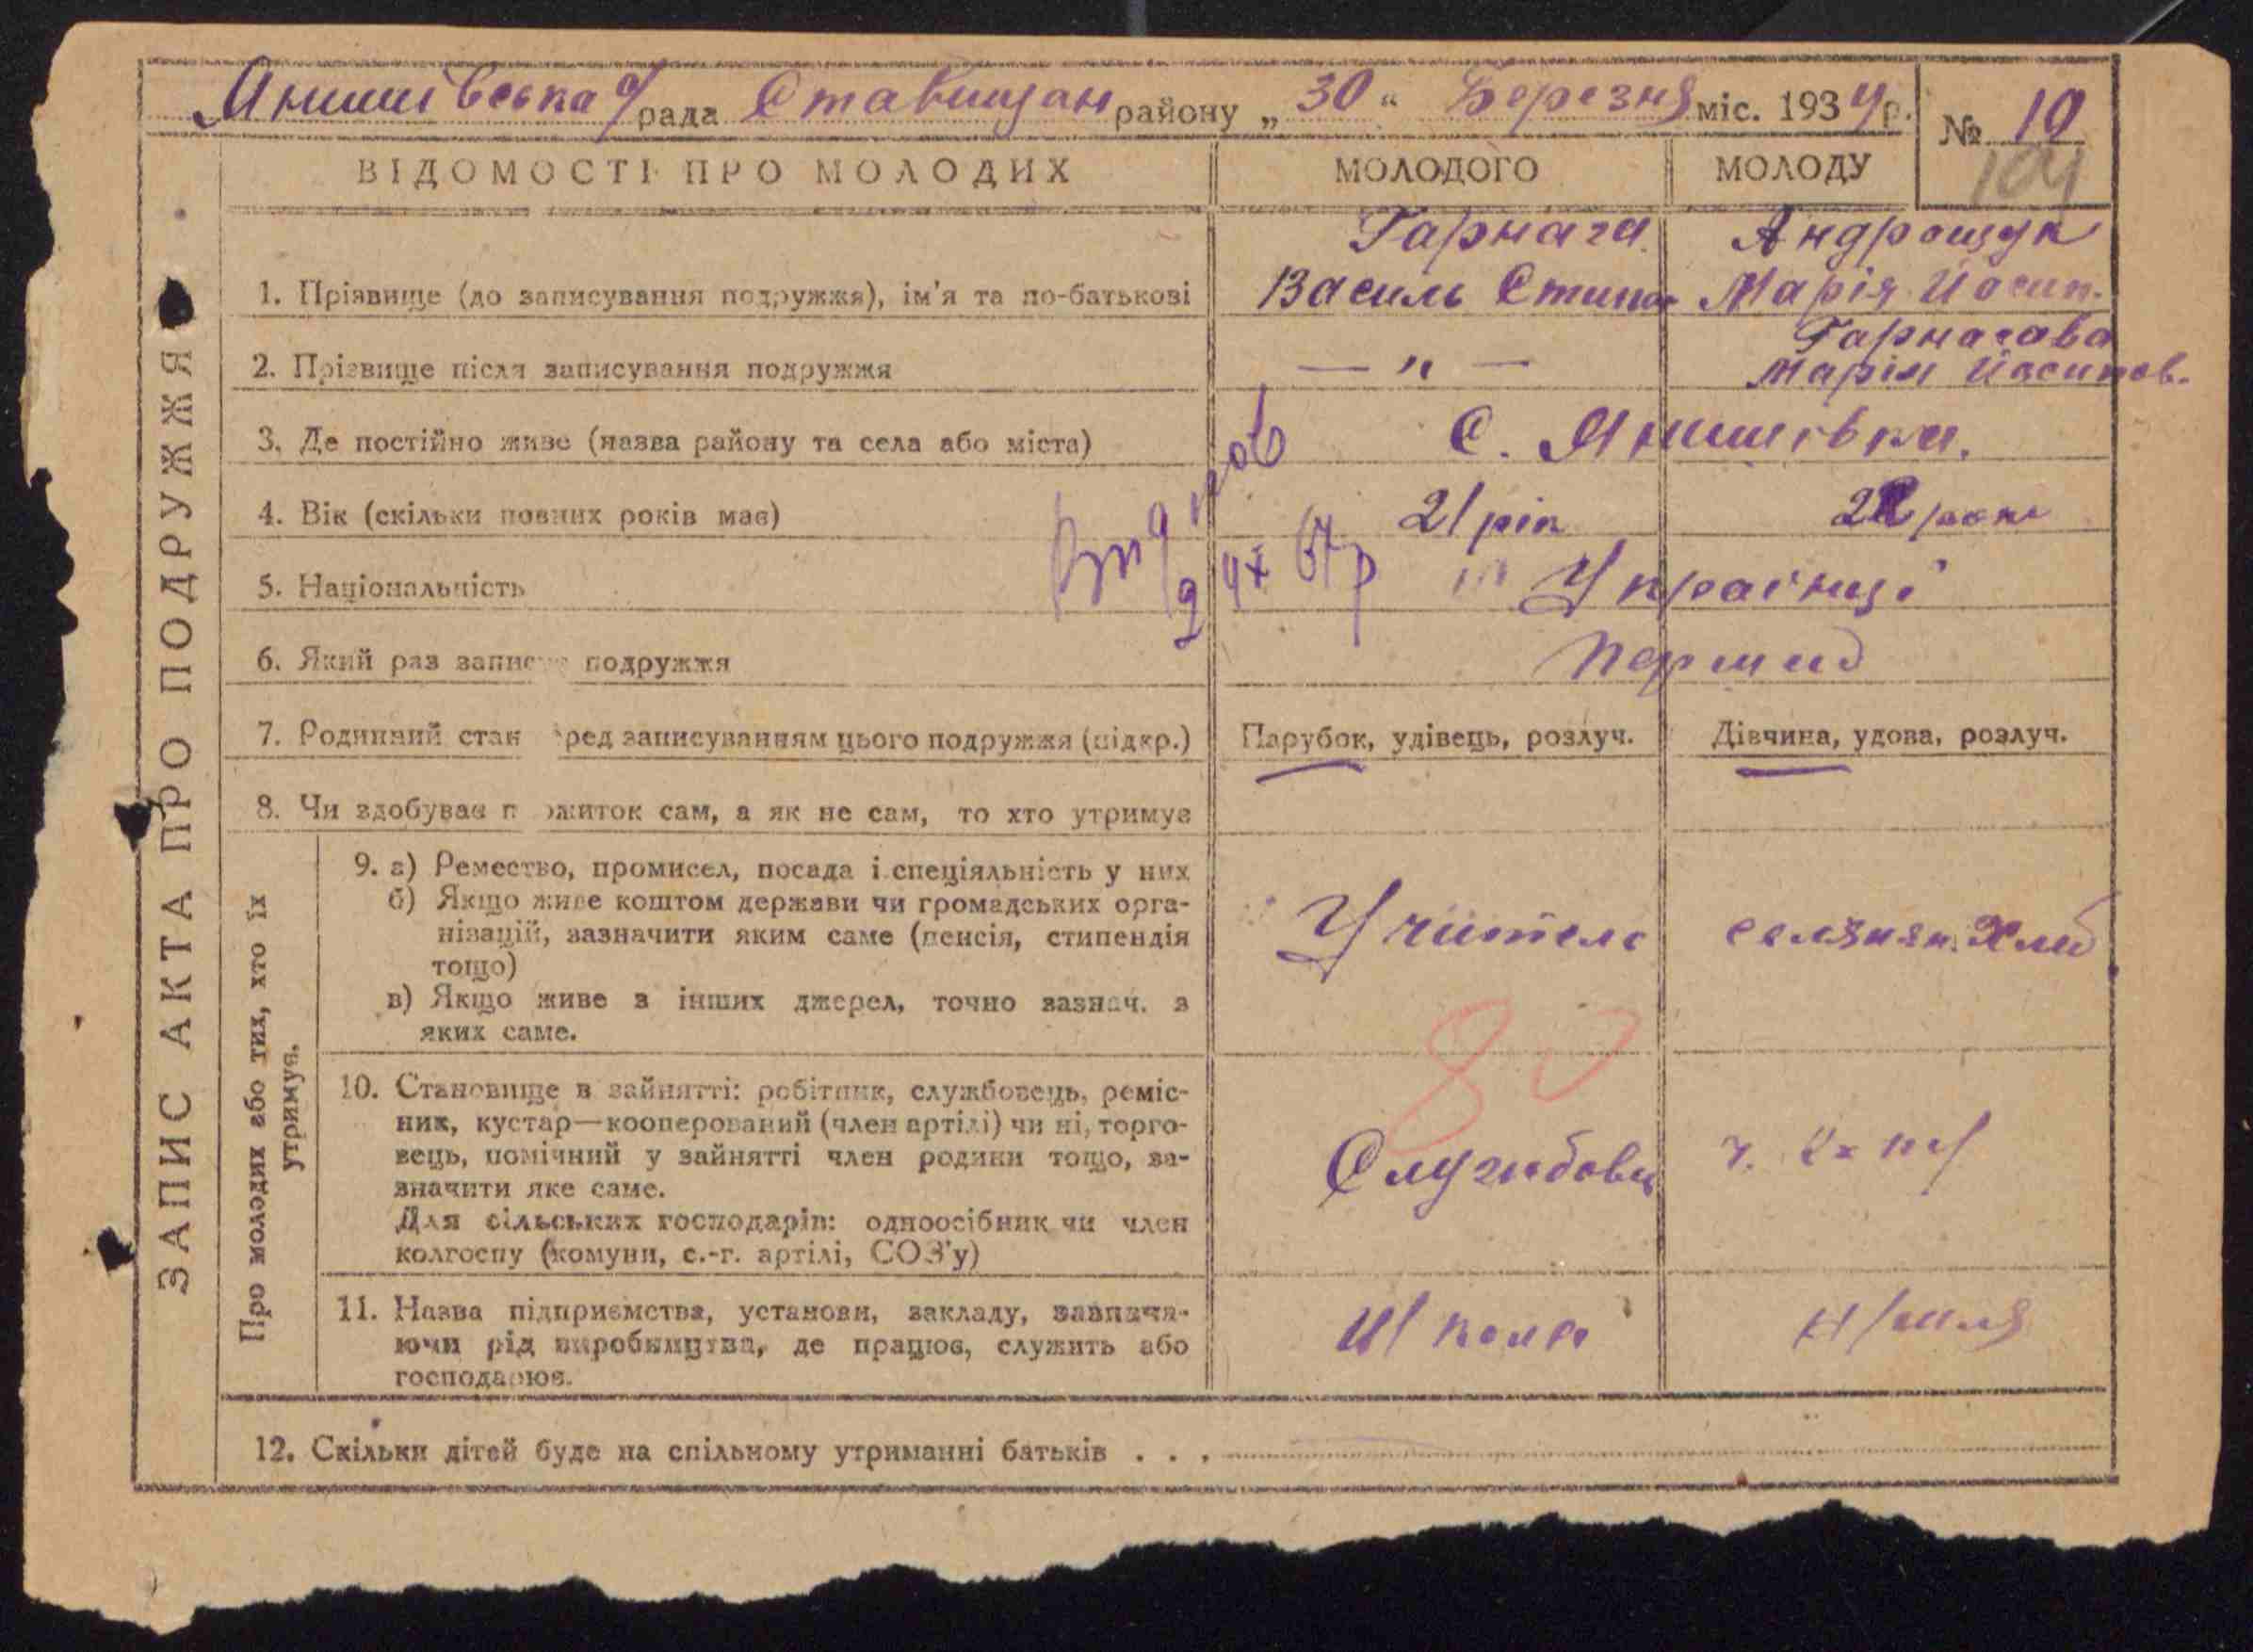 Янишівська с/рада Ставищан району „30“ Березня міс. 1934 р.
№ 10
101
ЗАПИС АКТА ПРО ПОДРУЖЖЯ
ВІДОМОСТІ ПРО МОЛОДИХ МОЛОДОГО МОЛОДУ
Гарнага Андрощук
1. Прізвище (до записування подружжя), ім'я та по-батькові Василь Степан Марія Йосип.
Гарнагова
2. Прізвище після записування подружжя — „ — Марія Йосипов.
3. Де постійно живе (назва району та села або міста) С. Янишівка.
4. Вік (скільки повних років має) 21 рік 22 роки
5. Національність Українці
6. Який раз записує подружжя Перший
7. Родинний стан перед записуванням цього подружжя (підкр.) Парубок, удівець, розлуч. Дівчина, удова, розлуч.
8. Чи здобуває пожиток сам, а як не сам, то хто утримує
Про молодих або тих, хто їх утримує.
9. а) Ремество, промисел, посада і спеціяльність у них
б) Якщо живе коштом держави чи громадських орга-
нізацій, зазначити яким саме (пенсія, стипендія
тощо)
в) Якщо живе з інших джерел, точно зазнач. з
яких саме.
Учитель селянин. Хліб
80
10. Становище в зайнятті: робітник, службовець, реміс-
ник, кустар—кооперований (член артілі) чи ні, торго-
вець, помічний у зайнятті член родини тощо, за-
значити яке саме.
Для сільських господарів: одноосібник чи член
колгоспу (комуни, с.-г. артілі, СОЗ'у)
Службовц
11. Назва підприємства, установи, закладу, зазнача-
ючи рід виробництва, де працює, служить або
господарює.
Школа
12. Скільки дітей буде на спільному утриманні батьків . . .